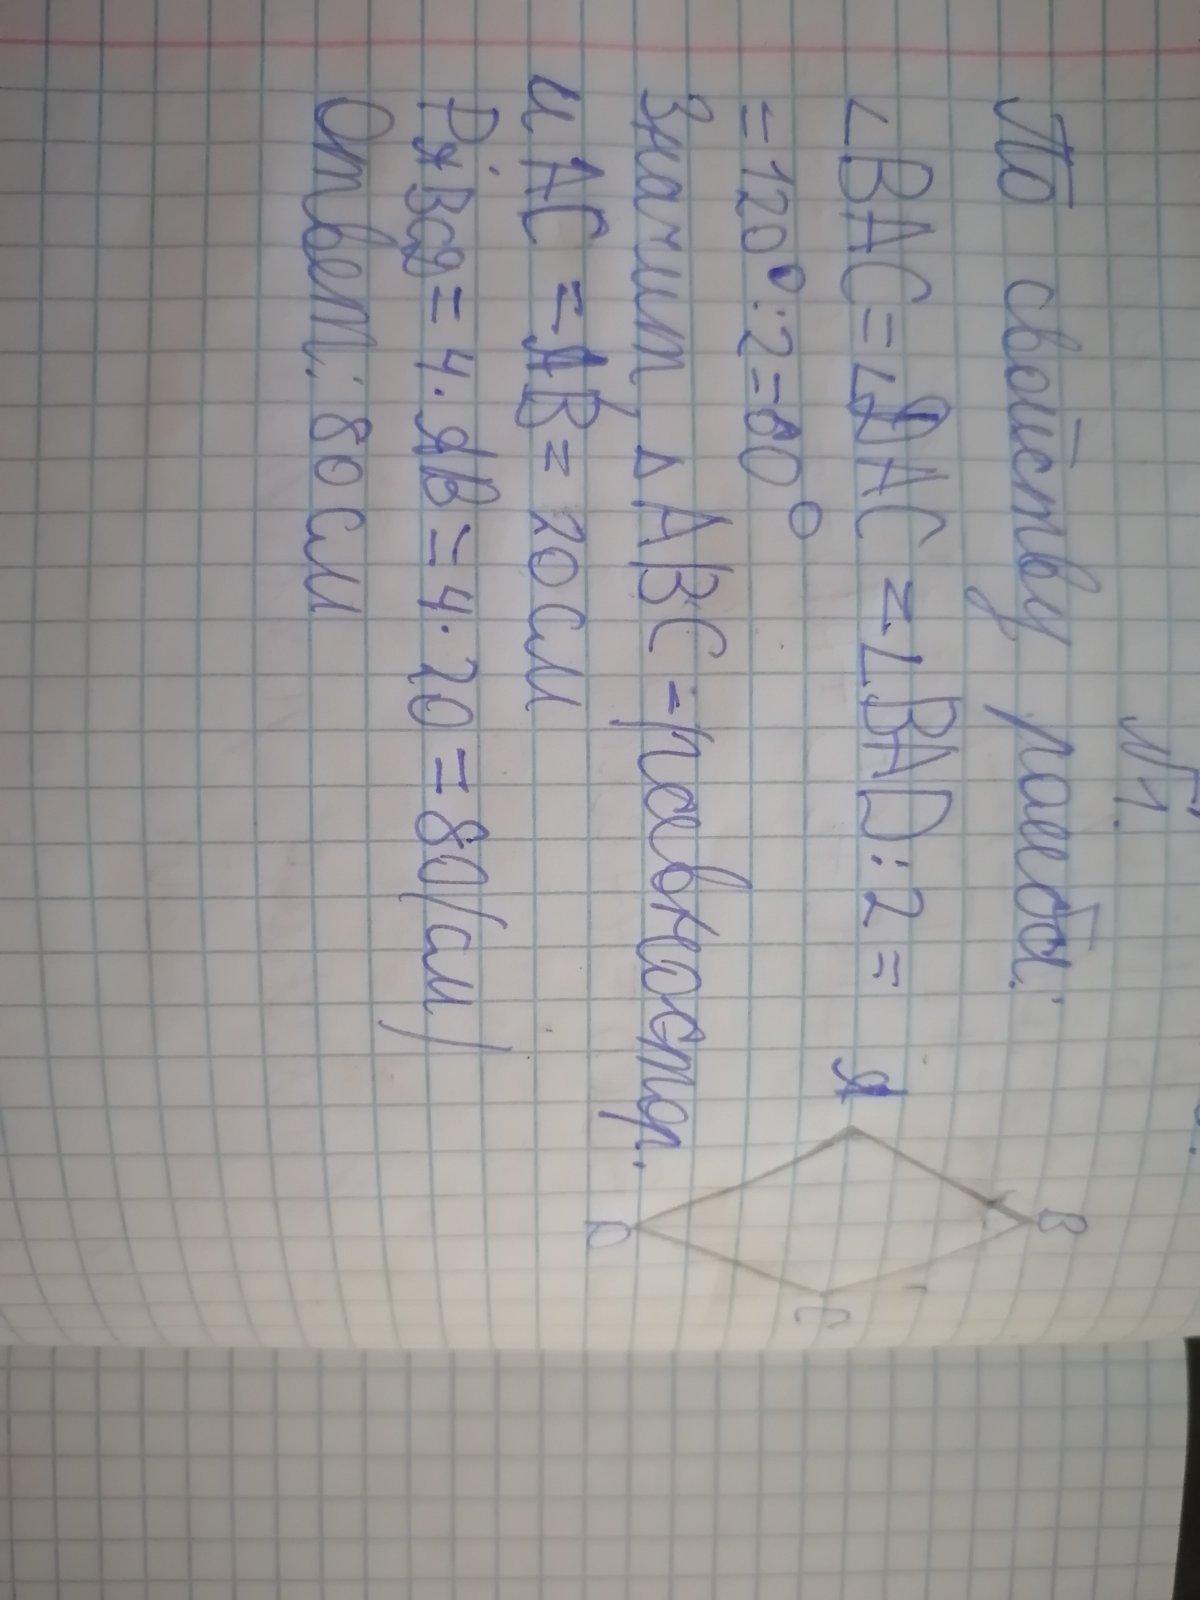 №1.
По свойству ромба:
∠BAC = ∠DAC = ∠BAD : 2 =
= 120° : 2 = 60°
Значит, △ABC - равностор.
и AC = AB = 20 см
P ABCD = 4 · AB = 4 · 20 = 80 (см)
Ответ: 80 см
A
B
C
D